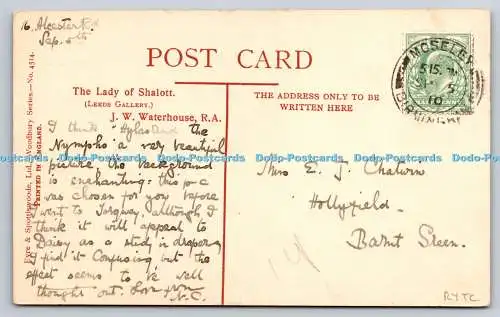 16 Alcester Rd
Sep. 5th
POST CARD
The Lady of Shalott.
(LEEDS GALLERY.)
J. W. Waterhouse, R.A.
I think "Hylas and the
Nymphs" a very beautiful
picture. The background
is enchanting: this p c
was chosen for you before
I went to Torquay, although I
think it will appeal to
Daisy as a study in drapery.
I find it confusing but the
effect seems to be well
thought out. Love from
N.C.
THE ADDRESS ONLY TO BE
WRITTEN HERE
Miss E. J. Chatwin
Hollyfield.
Barnt Green.
MOSELEY
5 15
10
Eyre & Spottiswoode, Ltd., Woodbury Series.—No. 4514.
PRINTED IN ENGLAND.
RYTC
www.postcardsworldwide.co.uk